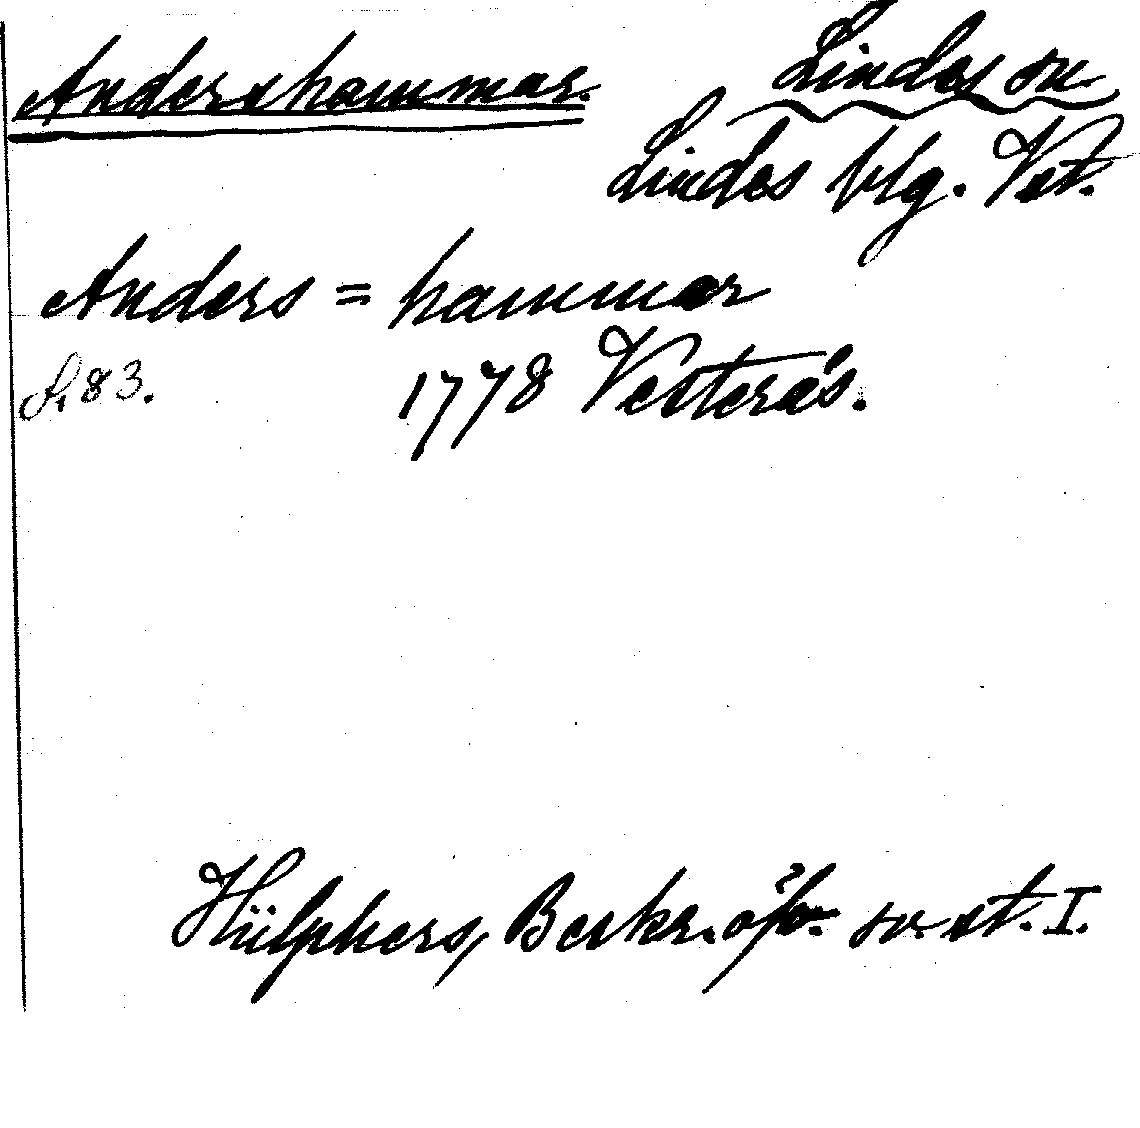 Andershammar. Lindes sn.
Lindes blg. Vet.
Anders = hammar
S. 83. 1778 Vesterås.
Hülphers, Beskr. ö/b. sv. st. I.